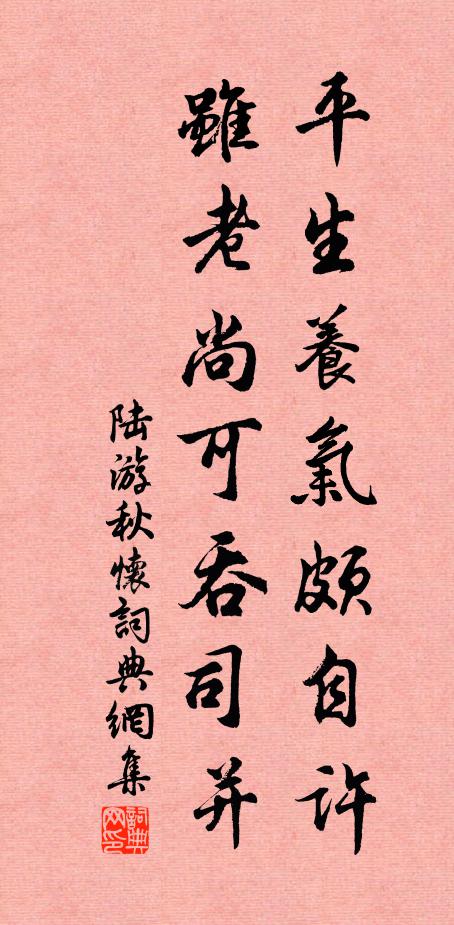 平生養氣頗自許
雖老尚可吞司并
陆游秋懷詞典網集
詞典网印